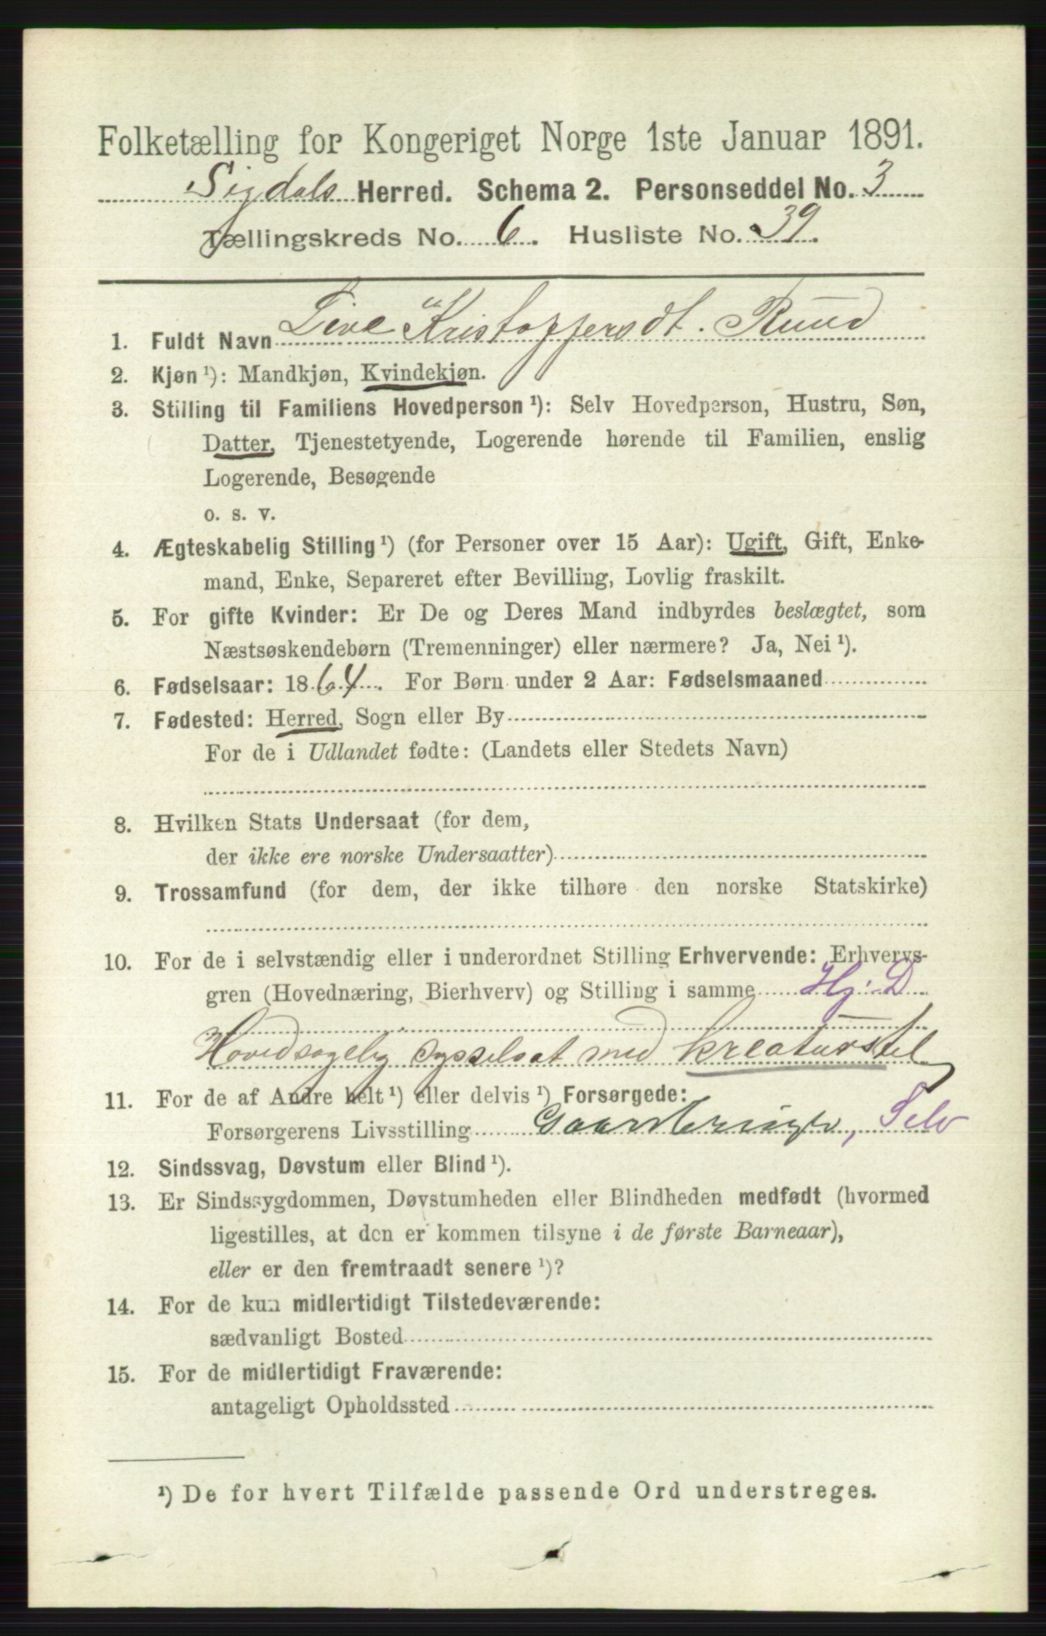 Folketælling for Kongeriget Norge 1ste Januar 1891.
Sigdals Herred. Schema 2. Personseddel No. 3
Tællingskreds No. 6. Husliste No. 39.
1. Fuldt Navn Live Kristoffersdt. Ruud
2. Kjøn ¹): Mandkjøn, Kvindekjøn.
3. Stilling til Familiens Hovedperson ¹): Selv Hovedperson, Hustru, Søn,
Datter, Tjenestetyende, Logerende hørende til Familien, enslig
Logerende, Besøgende
o. s. v.
4. Ægteskabelig Stilling ¹) (for Personer over 15 Aar): Ugift, Gift, Enke-
mand, Enke, Separeret efter Bevilling, Lovlig fraskilt.
5. For gifte Kvinder: Er De og Deres Mand indbyrdes beslægtet, som
Næstsøskendebørn (Tremenninger) eller nærmere? Ja, Nei ¹).
6. Fødselsaar: 1864. For Børn under 2 Aar: Fødselsmaaned
7. Fødested: Herred, Sogn eller By
For de i Udlandet fødte: (Landets eller Stedets Navn)
8. Hvilken Stats Undersaat (for dem,
der ikke ere norske Undersaatter)
9. Trossamfund (for dem, der ikke tilhøre den norske Statskirke)
10. For de i selvstændig eller i underordnet Stilling Erhvervende: Erhvervs-
gren (Hovednæring, Bierhverv) og Stilling i samme Hj: D
Hovedsagelig sysselsat med kreaturstel
11. For de af Andre helt ¹) eller delvis ¹) Forsørgede:
Forsørgerens Livsstilling Gaardbruger, Selv
12. Sindssvag, Døvstum eller Blind ¹).
13. Er Sindssygdommen, Døvstumheden eller Blindheden medfødt (hvormed
ligestilles, at den er kommen tilsyne i de første Barneaar),
eller er den fremtraadt senere ¹)?
14. For de kun midlertidigt Tilstedeværende:
sædvanligt Bosted
15. For de midlertidigt Fraværende:
antageligt Opholdssted
¹) De for hvert Tilfælde passende Ord understreges.